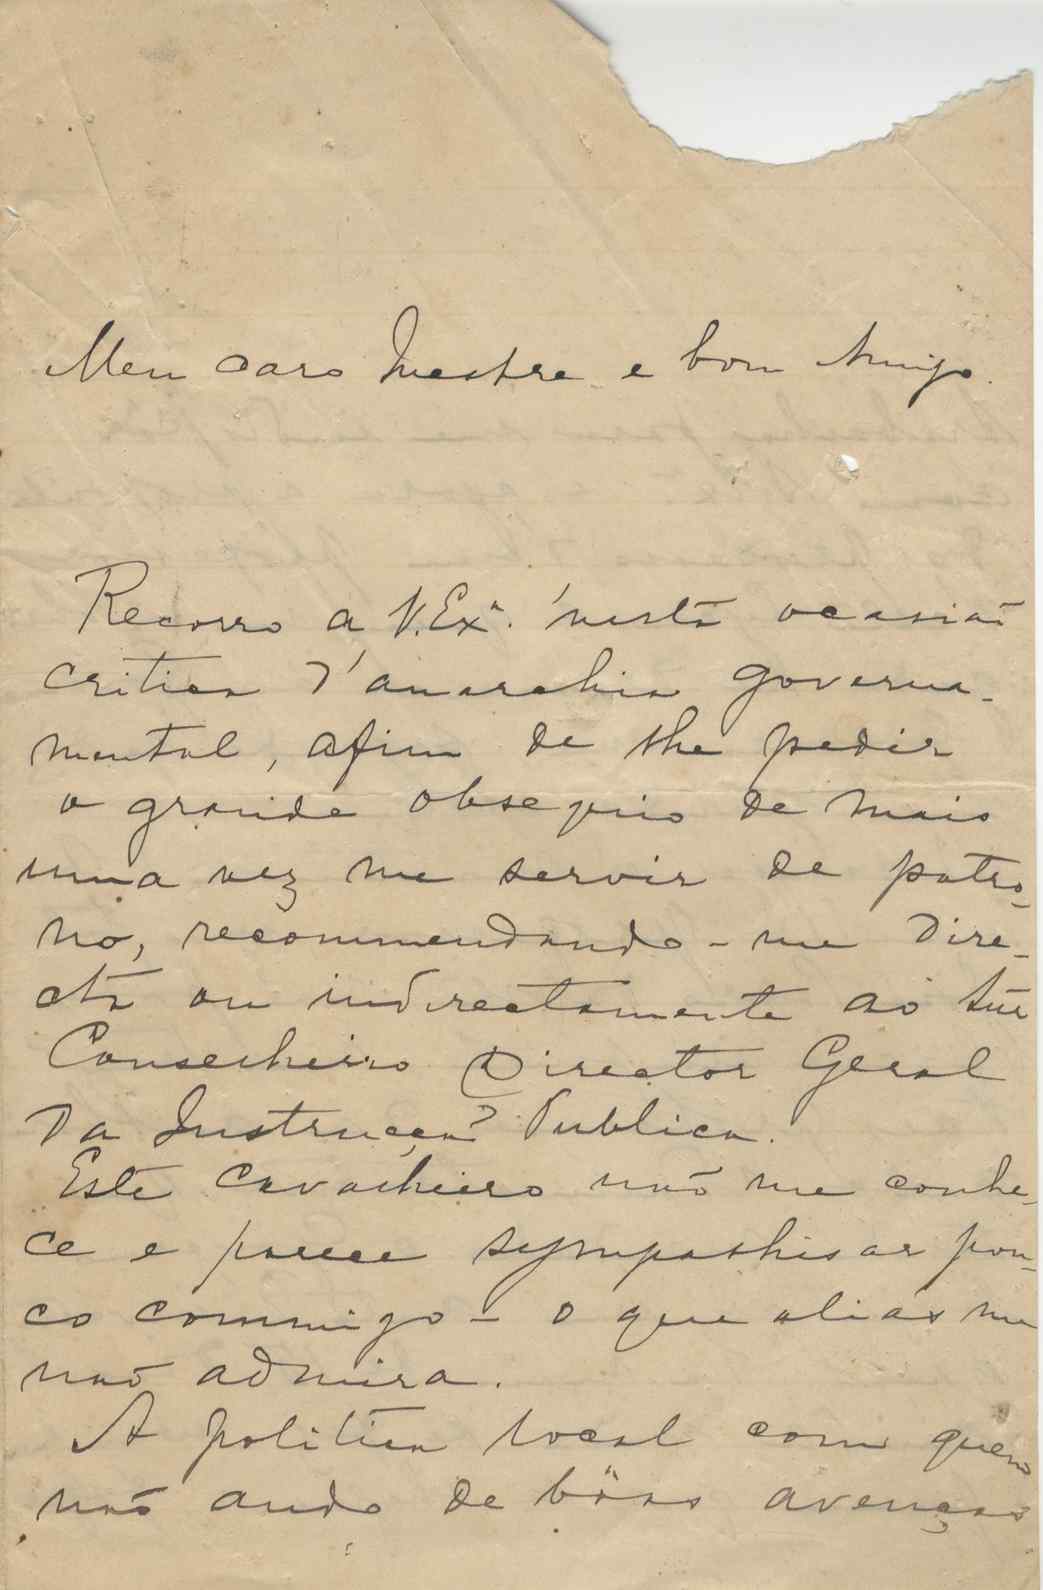 Meu caro Mestre e bom Amigo.
Recorro a V. Exª. n'esta occasião
critica d'anarchia governa-
mental, afim de lhe pedir
o grande obsequio de mais
uma vez me servir de patro-
no, recommendando-me dire-
cta ou indirectamente ao
Conselheiro Director Geral
da Instrucção Publica.
Este cavalheiro não me conhe-
ce e parece sympathisar pou-
co commigo – o que aliás me
não admira.
A politica local com quem
não ando de bôas avenças